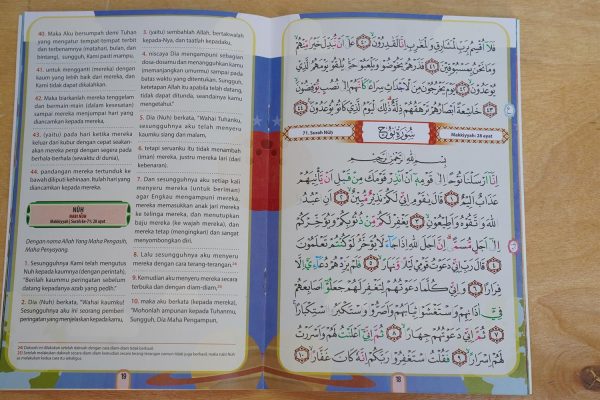 40. Maka Aku bersumpah demi Tuhan
yang mengatur tempat-tempat terbit
dan terbenamnya (matahari, bulan, dan
bintang), sungguh, Kami pasti mampu.
41. untuk mengganti (mereka) dengan
kaum yang lebih baik dari mereka, dan
Kami tidak dapat dikalahkan.
42. Maka biarkanlah mereka tenggelam
dan bermain-main (dalam kesesatan)
sampai mereka menjumpai hari yang
diancamkan kepada mereka.
43. (yaitu) pada hari ketika mereka
keluar dari kubur dengan cepat seakan-
akan mereka pergi dengan segera pada
berhala-berhala (sewaktu di dunia),
44. pandangan mereka tertunduk ke
bawah diliputi kehinaan. Itulah hari yang
diancamkan kepada mereka.
NŪḤ
NABI NUH
Makkiyyah | Surah ke-71: 28 ayat
Dengan nama Allah Yang Maha Pengasih,
Maha Penyayang.
1. Sesungguhnya Kami telah mengutus
Nuh kepada kaumnya (dengan perintah),
"Berilah kaummu peringatan sebelum
datang kepadanya azab yang pedih."
2. Dia (Nuh) berkata, "Wahai kaumku!
Sesungguhnya aku ini seorang pemberi
peringatan yang menjelaskan kepada kamu,
3. (yaitu) sembahlah Allah, bertakwalah
kepada-Nya, dan taatlah kepadaku,
4. niscaya Dia mengampuni sebagian
dosa-dosamu dan menangguhkan kamu
(memanjangkan umurmu) sampai pada
batas waktu yang ditentukan. Sungguh,
ketetapan Allah itu apabila telah datang,
tidak dapat ditunda, seandainya kamu
mengetahui."
5. Dia (Nuh) berkata, "Wahai Tuhanku,
sesungguhnya aku telah menyeru
kaumku siang dan malam.
6. tetapi seruanku itu tidak menambah
(iman) mereka, justru mereka lari (dari
kebenaran).
7. Dan sesungguhnya aku setiap kali
menyeru mereka (untuk beriman)
agar Engkau mengampuni mereka,
mereka memasukkan anak jari mereka
ke telinga mereka, dan menutupkan
baju mereka (ke wajah mereka), dan
mereka tetap (mengingkari) dan sangat
menyombongkan diri.
8. Lalu sesungguhnya aku menyeru
mereka dengan cara terang-terangan.
9. Kemudian aku menyeru mereka secara
terbuka dan dengan diam-diam.
10. maka aku berkata (kepada mereka),
"Mohonlah ampunan kepada Tuhanmu,
Sungguh, Dia Maha Pengampun,
19
فَلَا أُقْسِمُ بِرَبِّ الْمَشَارِقِ وَالْمَغَارِبِ إِنَّا لَقَادِرُونَ ٤٠ عَلَى أَنْ نُبَدِّلَ خَيْرًا مِنْهُمْ
وَمَا نَحْنُ بِمَسْبُوقِينَ ٤١ فَذَرْهُمْ يَخُوضُوا وَيَلْعَبُوا حَتَّى يُلَاقُوا يَوْمَهُمُ الَّذِي
يُوعَدُونَ ٤٢ يَوْمَ يَخْرُجُونَ مِنَ الْأَجْدَاثِ سِرَاعًا كَأَنَّهُمْ إِلَى نُصُبٍ يُوفِضُونَ
٤٣ خَاشِعَةً أَبْصَارُهُمْ تَرْهَقُهُمْ ذِلَّةٌ ذَلِكَ الْيَوْمُ الَّذِي كَانُوا يُوعَدُونَ ٤٤
71. Surah Nūḥ سُورَةُ نُوحٍ Makkiyyah: 28 ayat
بِسْمِ اللَّهِ الرَّحْمَنِ الرَّحِيمِ
إِنَّا أَرْسَلْنَا نُوحًا إِلَى قَوْمِهِ أَنْ أَنْذِرْ قَوْمَكَ مِنْ قَبْلِ أَنْ يَأْتِيَهُمْ
عَذَابٌ أَلِيمٌ ١ قَالَ يَا قَوْمِ إِنِّي لَكُمْ نَذِيرٌ مُبِينٌ ٢ أَنِ اعْبُدُوا
اللَّهَ وَاتَّقُوهُ وَأَطِيعُونِ ٣ يَغْفِرْ لَكُمْ مِنْ ذُنُوبِكُمْ وَيُؤَخِّرْكُمْ
إِلَى أَجَلٍ مُسَمًّى إِنَّ أَجَلَ اللَّهِ إِذَا جَاءَ لَا يُؤَخَّرُ لَوْ كُنْتُمْ تَعْلَمُونَ
٤ قَالَ رَبِّ إِنِّي دَعَوْتُ قَوْمِي لَيْلًا وَنَهَارًا ٥ فَلَمْ يَزِدْهُمْ دُعَائِي إِلَّا
فِرَارًا ٦ وَإِنِّي كُلَّمَا دَعَوْتُهُمْ لِتَغْفِرَ لَهُمْ جَعَلُوا أَصَابِعَهُمْ
فِي آذَانِهِمْ وَاسْتَغْشَوْا ثِيَابَهُمْ وَأَصَرُّوا وَاسْتَكْبَرُوا اسْتِكْبَارًا
٧ ثُمَّ إِنِّي دَعَوْتُهُمْ جِهَارًا ٨ ثُمَّ إِنِّي أَعْلَنْتُ لَهُمْ وَأَسْرَرْتُ
لَهُمْ إِسْرَارًا ٩ فَقُلْتُ اسْتَغْفِرُوا رَبَّكُمْ إِنَّهُ كَانَ غَفَّارًا ١٠
18